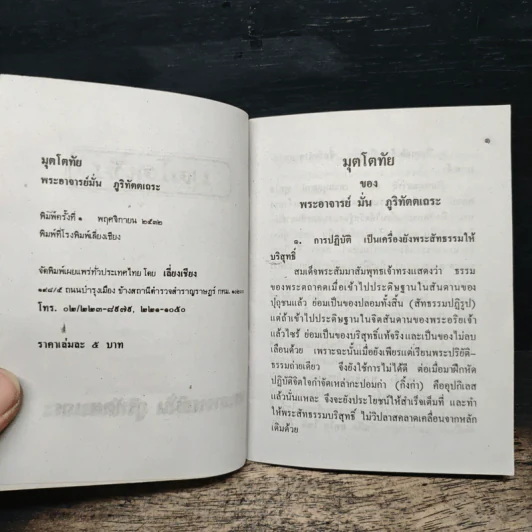 มุตโตทัย
พระอาจารย์มั่น ภูริทัตตเถระ
พิมพ์ครั้งที่ ๑ พฤศจิกายน ๒๕๓๒
พิมพ์ที่โรงพิมพ์เลี่ยงเชียง
จัดพิมพ์เผยแพร่ทั่วประเทศไทย โดย เลี่ยงเชียง
๑๙๘/๕ ถนนบำรุงเมือง ข้างสถานีตำรวจสำราญราษฎร์ กทม.
โทร. ๐๒/๒๒๓-๘๙๗๕, ๒๒๑-๑๐๕๐
ราคาเล่มละ ๕ บาท
มุตโตทัย
ของ
พระอาจารย์ มั่น ภูริทัตตเถระ
๑. การปฏิบัติ เป็นเครื่องยังพระสัทธรรมให้
บริสุทธิ์
สมเด็จพระสัมมาสัมพุทธเจ้าทรงแสดงว่า ธรรม
ของพระตถาคตเมื่อเข้าไปประดิษฐานในสันดานของ
ปุถุชนแล้ว ย่อมเป็นของปลอมทั้งสิ้น (สัทธรรมปฏิรูป)
แต่ถ้าเข้าไปประดิษฐานในจิตสันดานของพระอริยเจ้า
แล้วไซร้ ย่อมเป็นของบริสุทธิ์แท้จริงและเป็นของไม่ลบ
เลือนด้วย เพราะฉะนั้นเมื่อยังเพียรแต่เรียนพระปริยัติ-
ธรรมถ่ายเดียว จึงยังใช้การไม่ได้ดี ต่อเมื่อมาฝึกหัด
ปฏิบัติจิตใจกำจัดเหล่ากะปอมก่า (กิ้งก่า) คืออุปกิเลส
แล้วนั่นแหละ จึงจะยังประโยชน์ให้สำเร็จเต็มที่ และทำ
ให้พระสัทธรรมบริสุทธิ์ ไม่วิปลาสคลาดเคลื่อนจากหลัก
เดิมด้วย